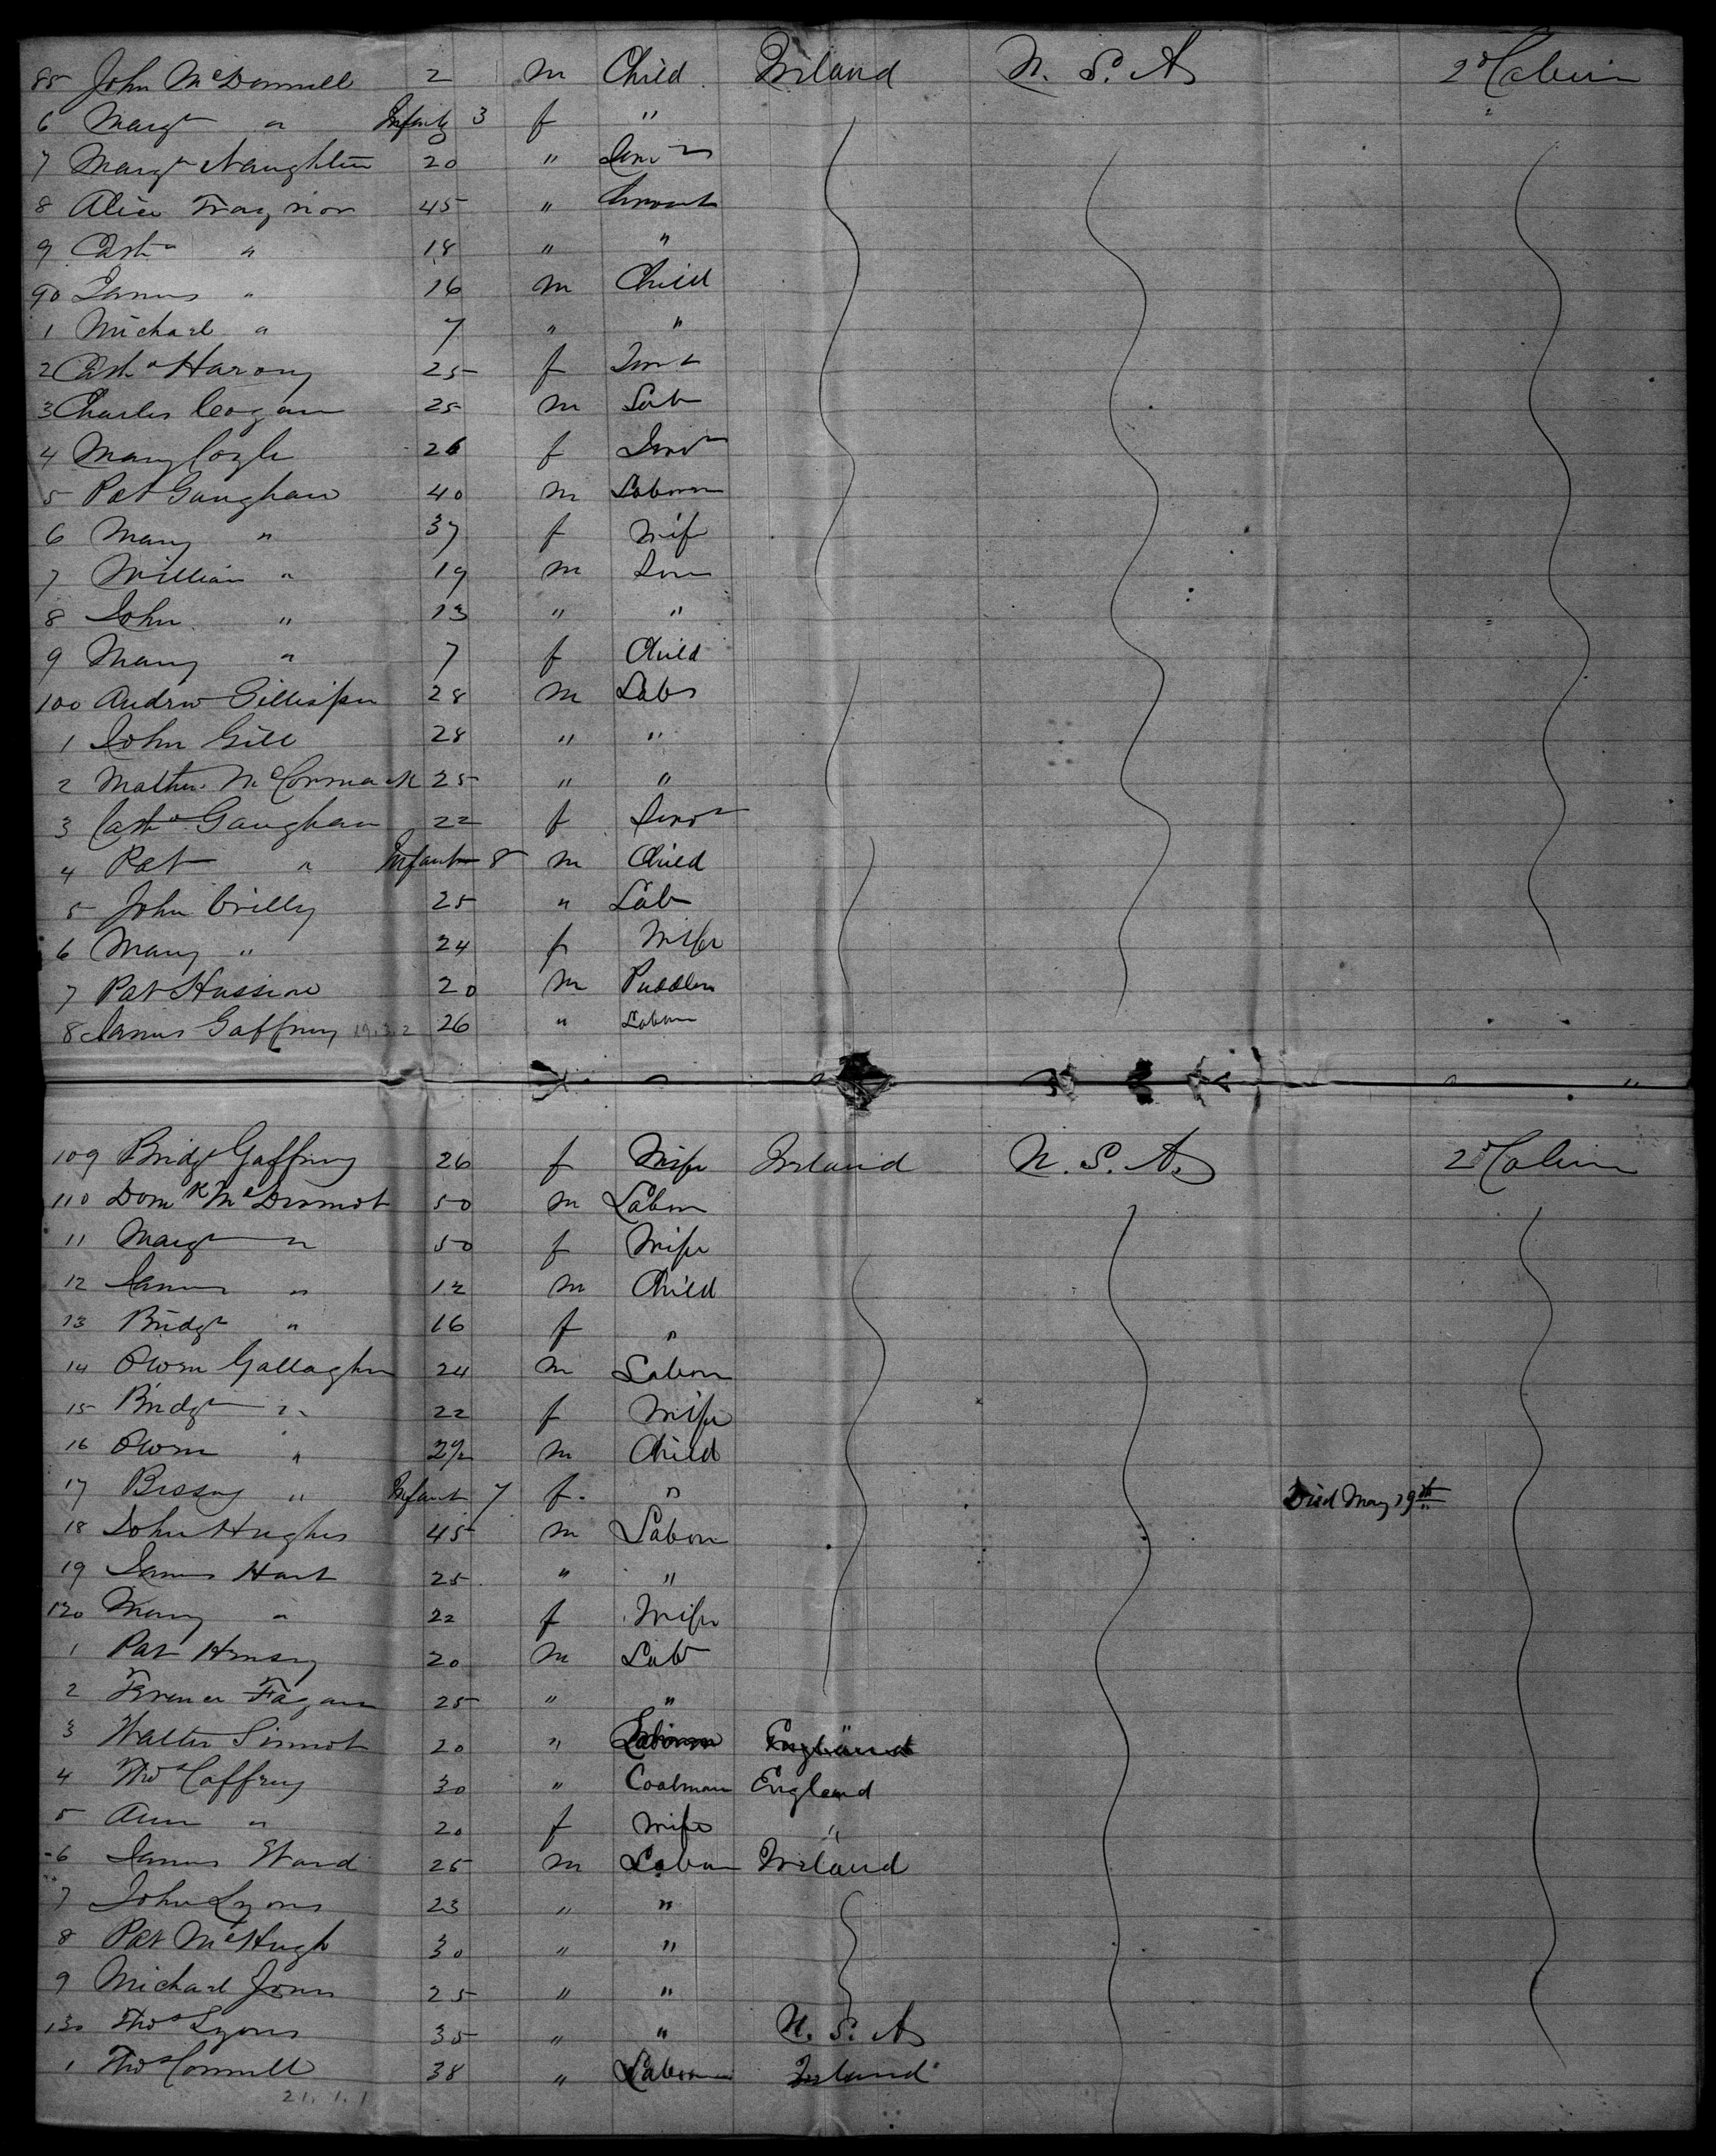 85 John McDonnell 2 m Child Ireland U. S. A 2d Cabin
6 Margt " Infant 3 f "
7 Margt Naughton 20 " Servt
8 Alice Traynor 45 " Servant
9 Cathe " 18 " "
90 James " 16 m Child
1 Michael " 7 " "
2 Cathe Harony 25 f Servt
3 Charles Cogan 25 m Lab
4 Mary Coyle 26 f Servt
5 Pat Gaughan 40 m Laborer
6 Mary " 37 f Wife
7 William " 19 m Son
8 John " 13 " "
9 Mary " 7 f Child
100 Andrew Gillispie 28 m Labr
1 John Gill 28 " "
2 Mathew McCormack 25 " "
3 Cathe Gaughan 22 f Servt
4 Pat " Infant 8 m Child
5 John Crilly 25 " Lab
6 Mary " 24 f Wife
7 Pat 20 m Puddler
8 James Gaffney 19.3.2 26 " Labor
109 Bridgt Gaffney 26 f Wife Ireland U. S. A. 2d Cabin
110 Domk McDermot 50 m Labor
11 Margt " 50 f Wife
12 James " 12 m Child
13 Bridgt " 16 f "
14 Owen Gallagher 24 m Labour
15 Bridgt " 22 f Wife
16 Owen " 2½ m Child
17 Bessy " Infant 7 f. " Died May 29th
18 John Hughes 45 m Labor
19 James Hart 25 " "
120 Mary " 22 f Wife
1 Pat 20 m Lab
2 Terence Fagan 25 " "
3 Walter Sinnot 20 " Laborer England
4 Thos Caffrey 30 " Coalman England
5 Ann " 20 f Wife "
6 James Ward 25 m Labor Ireland
7 John Lyons 23 " "
8 Pat McHugh 30 " "
9 Michael Jones 25 " "
130 Thos Lyons 35 " " U. S. A
1 Thos Connell 38 " Laborer Ireland
21.1.1